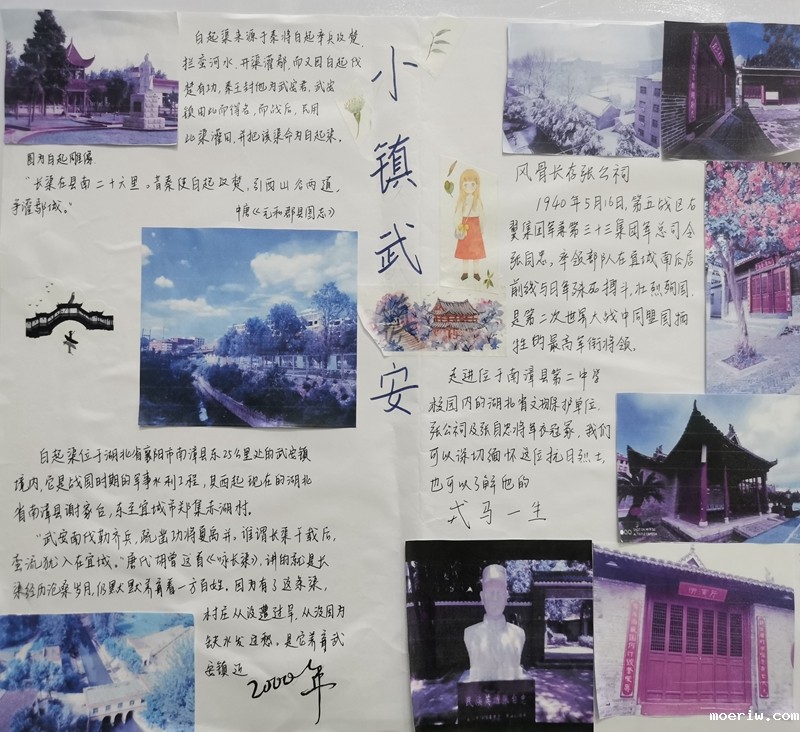 小镇武安
白起渠来源于秦将白起率兵攻楚,
拦蛮河水,开渠灌鄢,而又因白起伐
楚有功,秦王封他为武安君,武安
镇由此而得名,而战后,民用
此渠灌田,并把该渠命为白起渠。
图为白起雕像
“长渠在县南二十六里。昔秦使白起攻楚,引西山谷两道,
争灌鄢城。”
中唐《元和郡县图志》
白起渠位于湖北省襄阳市南漳县东25公里处的武安镇
境内,它是战国时期的军事水利工程,其西起现在的湖北
省南漳县谢家台,东至宜城市郑集赤湖村。
“武安南伐勒齐兵,疏出功将夏禹并。谁谓长渠千载后,
蛮流犹入在宜城。”唐代胡曾这首《咏长渠》,讲的就是长
渠经历沧桑岁月,仍默默养育着一方百姓。因为有了这条渠,
村庄从没遭过旱,从没因为
缺水发过愁。是它养育武
安镇近
2000年
风骨长存张公祠
1940年5月16日,第五战区右
翼集团军兼第三十三集团军总司令
张自忠,率领部队在宜城南瓜店
前线与日军殊死搏斗,壮烈殉国,
是第二次世界大战中同盟国牺
牲的最高军衔将领。
走进位于南漳县第二中学
校园内的湖北省文物保护单位
张公祠及张自忠将军衣冠冢,我们
可以深切缅怀这位抗日烈士,
也可以了解他的
戎马一生
moeriw.com